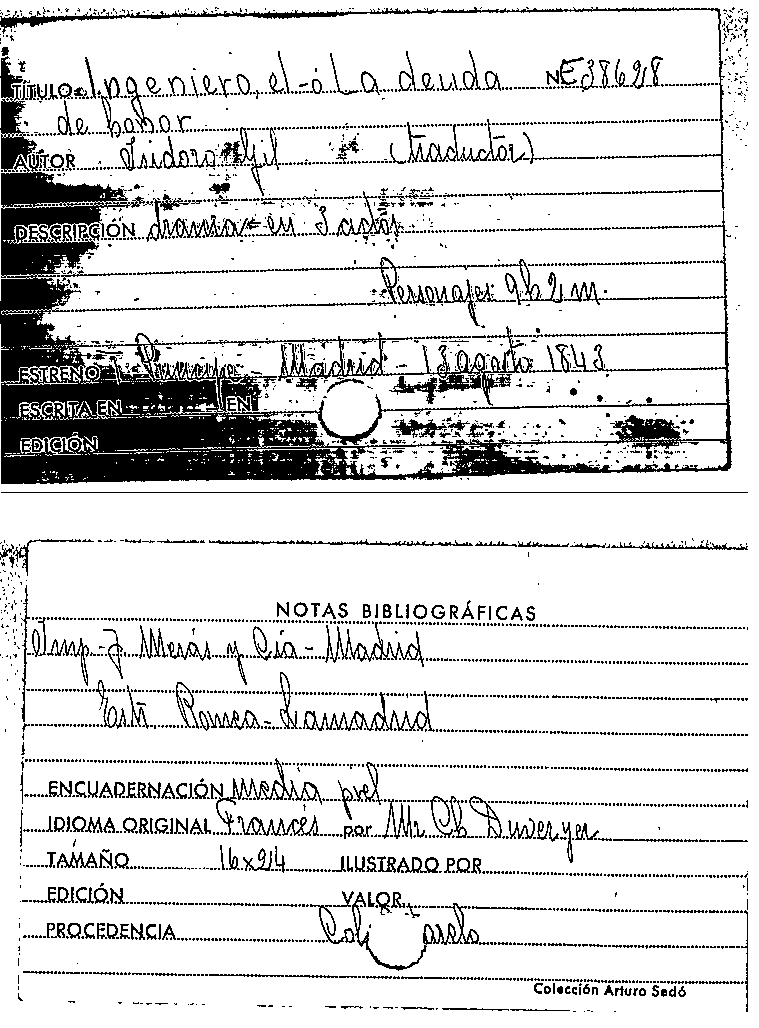 TÍTULO Ingeniero, el - ó La deuda NE 38628
de honor
AUTOR Isidoro Gil (traductor)
DESCRIPCIÓN drama en 3 actos
Personajes 9 h 2 m.
ESTRENO T. Principe - Madrid - 13 agosto 1843
ESCRITA EN EN
EDICIÓN
NOTAS BIBLIOGRÁFICAS
Imp. J. Merás y Cía - Madrid
Est. Romea - Lamadrid
ENCUADERNACIÓN media piel
IDIOMA ORIGINAL Francés por Mr Ch Duveryer
TAMAÑO 16x24 ILUSTRADO POR
EDICIÓN VALOR
PROCEDENCIA
Colección Arturo Sedó